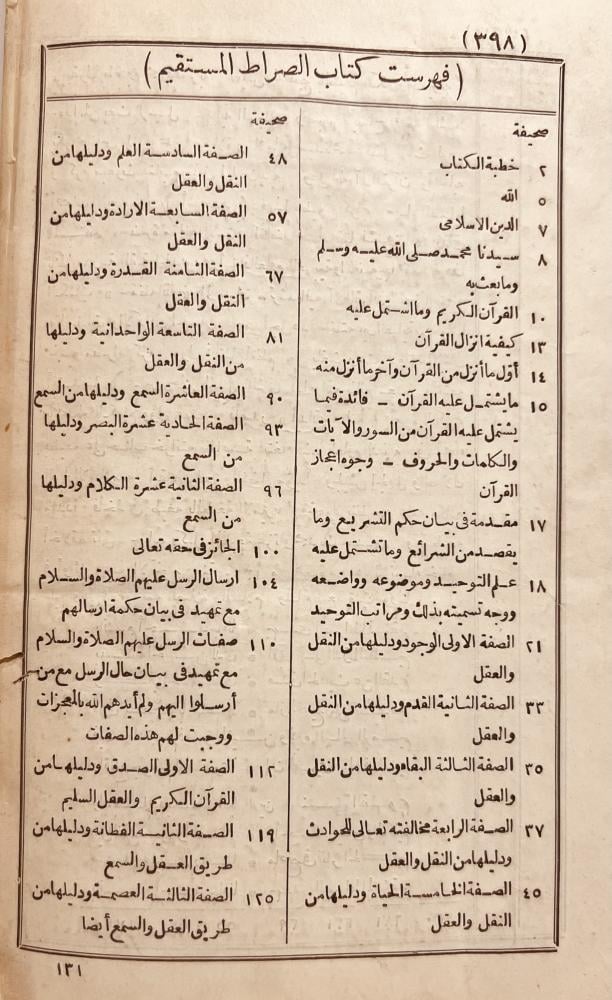 (٣٩٨)
(فهرست كتاب الصراط المستقيم)
صحيفة
٢ خطبة الكتاب
٥ الله
٧ الدين الاسلامى
٨ سيدنا محمد صلى الله عليه وسلم
وما بعث به
١٠ القرآن الكريم وما اشتمل عليه
١٣ كيفية انزال القرآن
١٤ أول ما أنزل من القرآن وآخر ما أنزل منه
١٥ ما يشتمل عليه القرآن - فائدة فيما
يشتمل عليه القرآن من السور والآيات
والكلمات والحروف - وجوه اعجاز
القرآن
١٧ مقدمة فى بيان حكم التشريع وما
يقصد من الشرائع وما تشتمل عليه
١٨ علم التوحيد وموضوعه وواضعه
ووجه تسميته بذلك ومراتب التوحيد
٢١ الصفة الاولى الوجود ودليلها من النقل
والعقل
٣٣ الصفة الثانية القدم ودليلها من النقل
والعقل
٣٥ الصفة الثالثة البقاء ودليلها من النقل
والعقل
٣٧ الصفة الرابعة مخالفته تعالى للحوادث
ودليلها من النقل والعقل
٤٥ الصفة الخامسة الحياة ودليلها من
النقل والعقل
صحيفة
٤٨ الصفة السادسة العلم ودليلها من
النقل والعقل
٥٧ الصفة السابعة الارادة ودليلها من
النقل والعقل
٦٧ الصفة الثامنة القدرة ودليلها من
النقل والعقل
٨١ الصفة التاسعة الواحدانية ودليلها
من النقل والعقل
٩٠ الصفة العاشرة السمع ودليلها من السمع
٩٣ الصفة الحادية عشرة البصر ودليلها
من السمع
٩٦ الصفة الثانية عشرة الكلام ودليلها
من السمع
١٠٠ الجائز فى حقه تعالى
١٠٤ ارسال الرسل عليهم الصلاة والسلام
مع تمهيد فى بيان حكمة ارسالهم
١١٠ صفات الرسل عليهم الصلاة والسلام
مع تمهيد فى بيان حال الرسل مع من
أرسلوا اليهم ولم أيدهم الله بالمعجزات
ووجبت لهم هذه الصفات
١١٢ الصفة الاولى الصدق ودليلها من
القرآن الكريم والعقل السليم
١١٩ الصفة الثانية الفطانة ودليلها من
طريق العقل والسمع
١٢٥ الصفة الثالثة العصمة ودليلها من
طريق العقل والسمع أيضا
١٣١